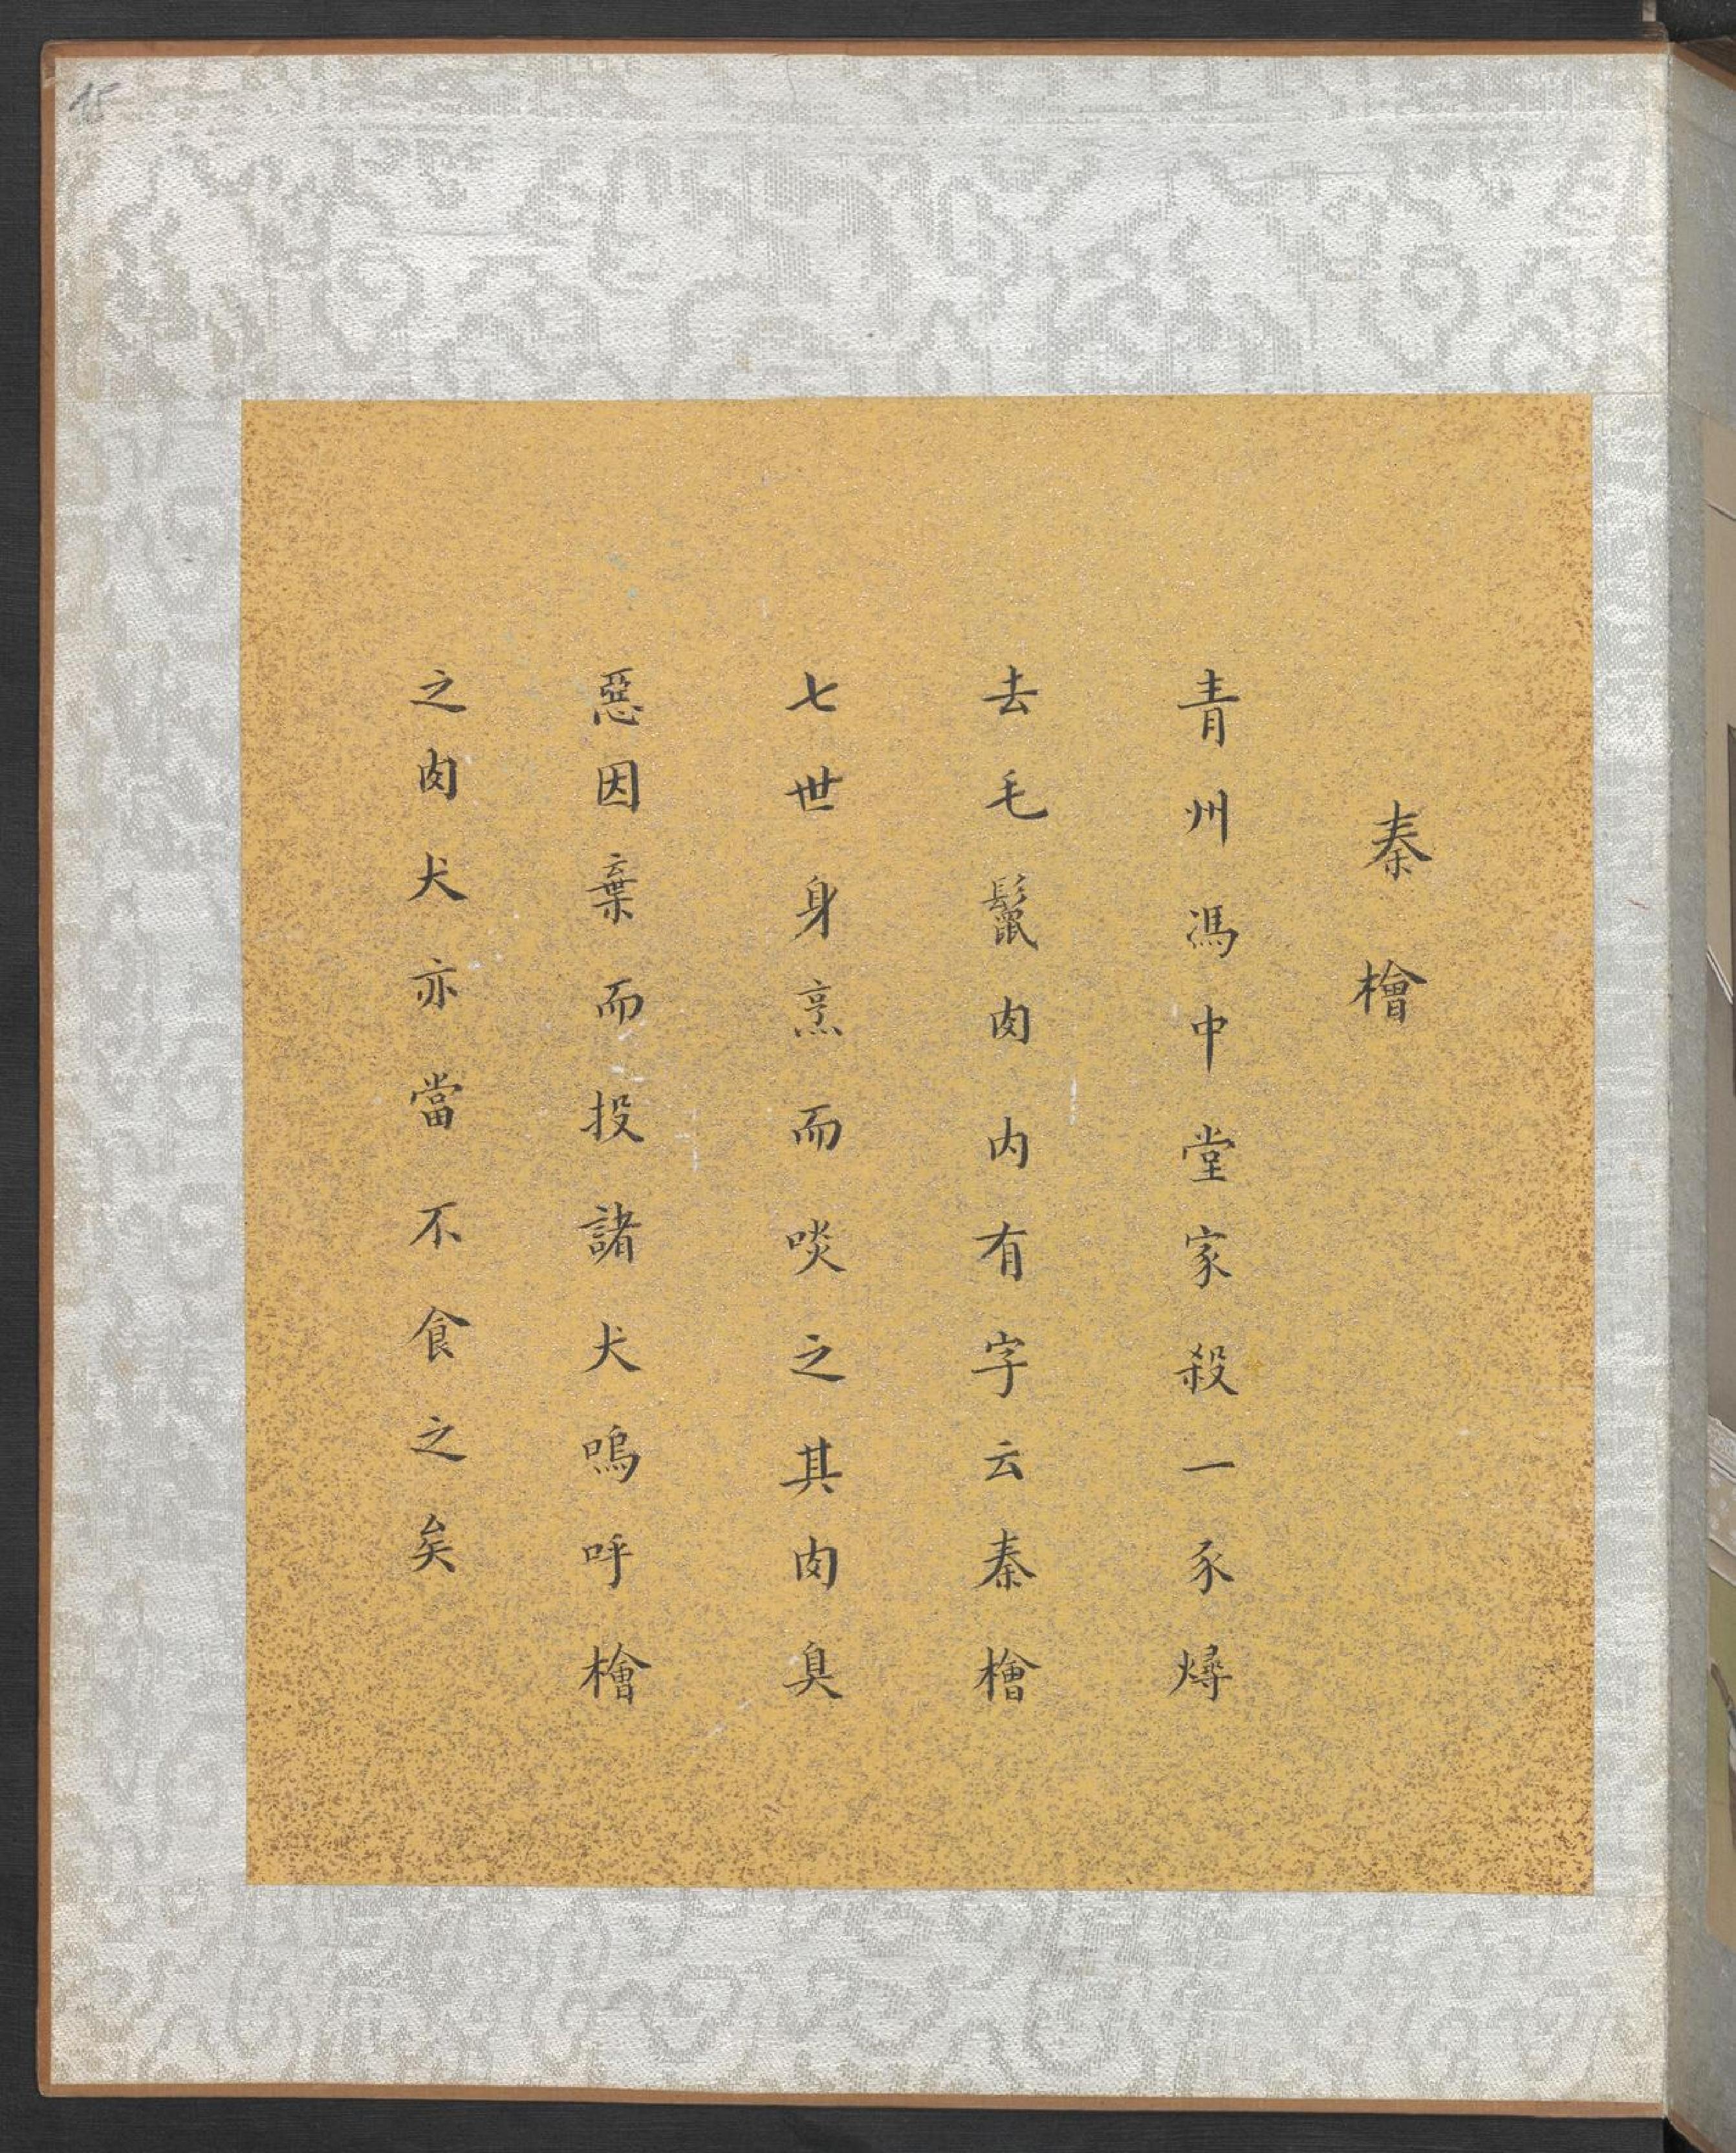 秦檜
青州馮中堂家殺一豕燖
去毛鬛肉内有字云秦檜
七世身烹而啖之其肉臭
惡因棄而投諸犬嗚呼檜
之肉犬亦當不食之矣
15